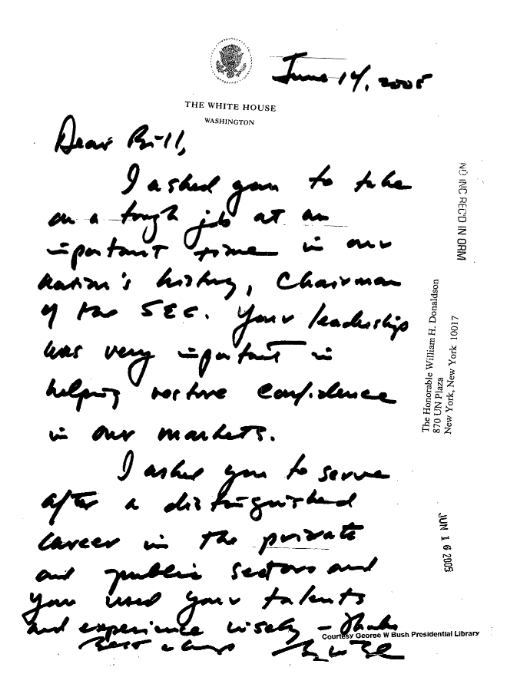 June 14, 2005
THE WHITE HOUSE
WASHINGTON
Dear Bill,
I asked you to take
on a tough job at an
important time in our
nation's history, Chairman
of the SEC. Your leadership
was very important in
helping restore confidence
in our markets.
I asked you to serve
after a distinguished
career in the private
and public sectors and
you used your talents
and experience wisely – Thanks
Best always
Courtesy George W Bush Presidential Library
NO INC REC'D IN ORM
The Honorable William H. Donaldson
870 UN Plaza
New York, New York 10017
JUN 16 2005